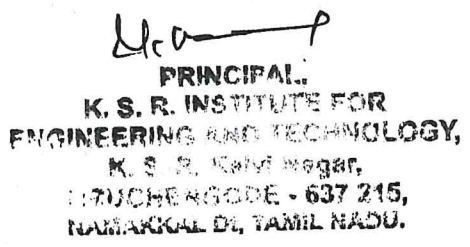 PRINCIPAL.
K. S. R. INSTITUTE FOR
ENGINEERING AND TECHNOLOGY,
K. S. R. Kalvi Nagar,
TIRUCHENGODE - 637 215,
NAMAKKAL Dt, TAMIL NADU.